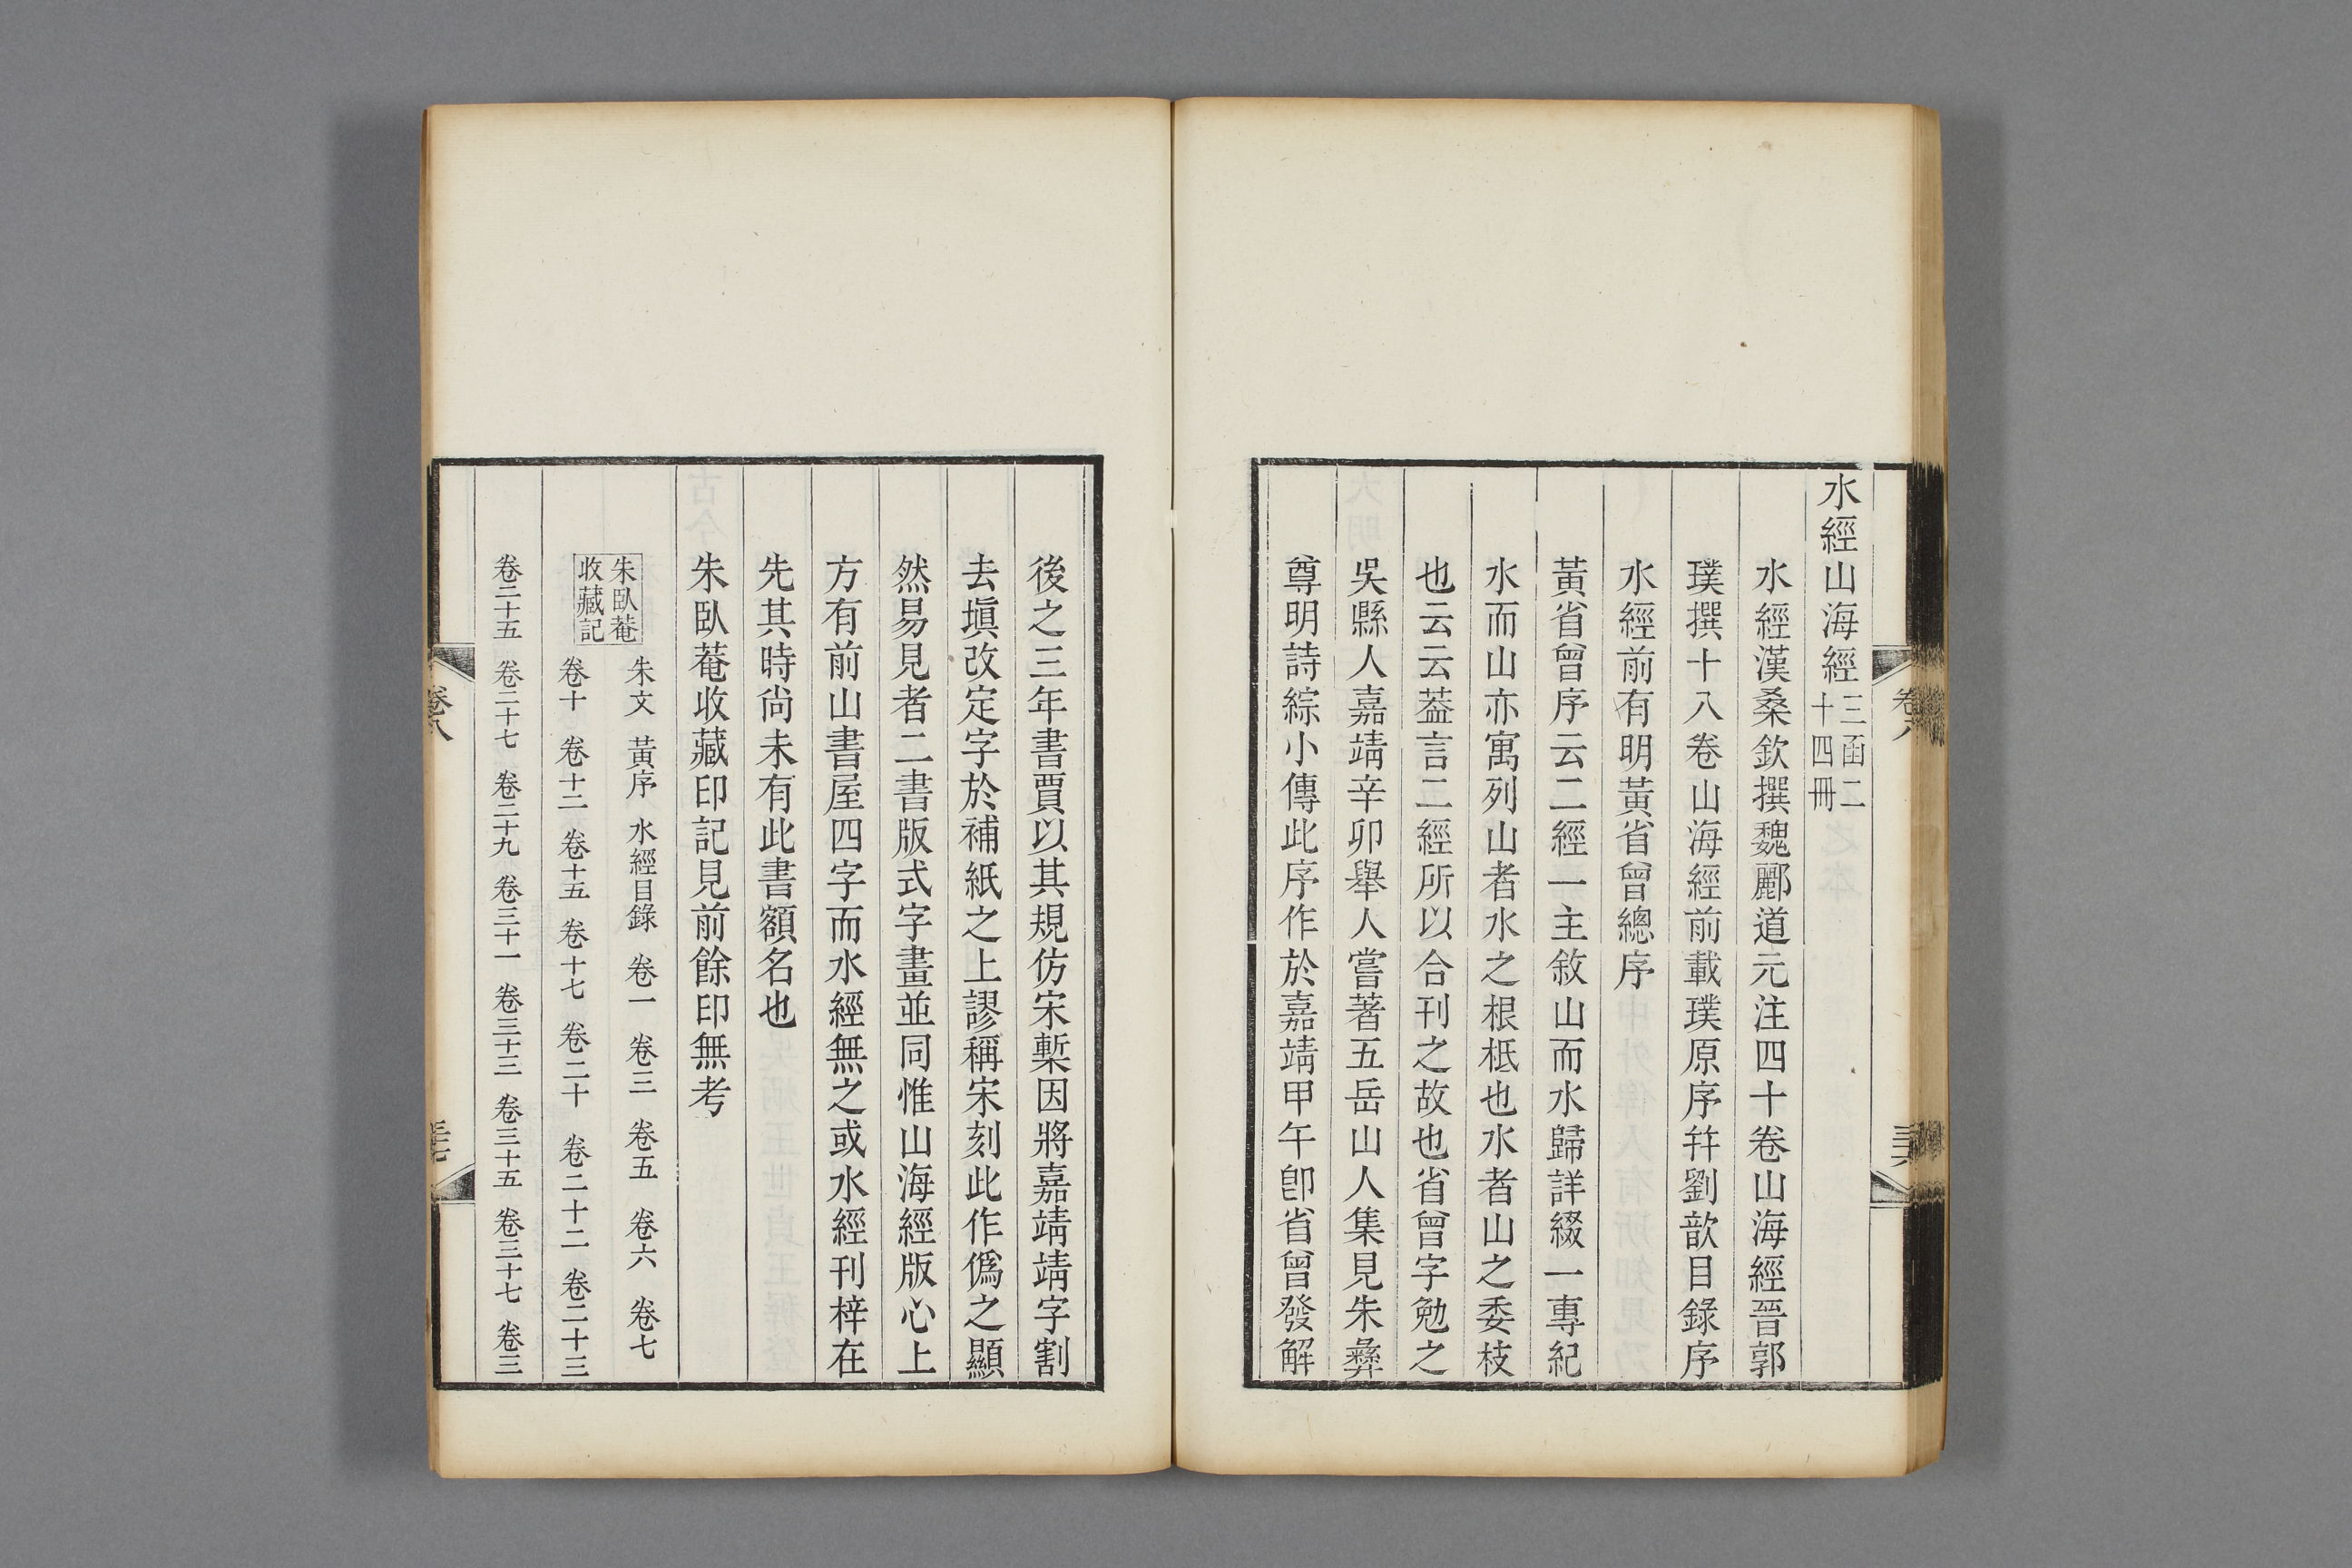 水經山海經三函二
十四冊
水經漢桑欽撰魏酈道元注四十卷山海經晉郭
璞撰十八卷山海經前載璞原序幷劉歆目錄序
水經前有明黃省曾總序
黃省曾序云二經一主敘山而水歸詳綴一專紀
水而山亦寓列山者水之根柢也水者山之委枝
也云云葢言二經所以合刊之故也省曾字勉之
吳縣人嘉靖辛卯舉人嘗著五岳山人集見朱彝
尊明詩綜小傳此序作於嘉靖甲午卽省曾發解
後之三年書賈以其規仿宋槧因將嘉靖靖字割
去塡改定字於補紙之上謬稱宋刻此作僞之顯
然易見者二書版式字畫並同惟山海經版心上
方有前山書屋四字而水經無之或水經刊梓在
先其時尚未有此書額名也
朱臥菴收藏印記見前餘印無考
朱臥菴
收藏記
朱文 黃序 水經目錄 卷一 卷三 卷五 卷六 卷七
卷十 卷十二 卷十五 卷十七 卷二十 卷二十二 卷二十三
卷二十五 卷二十七 卷二十九 卷三十一 卷三十三 卷三十五 卷三十七 卷三
卷八
卷八